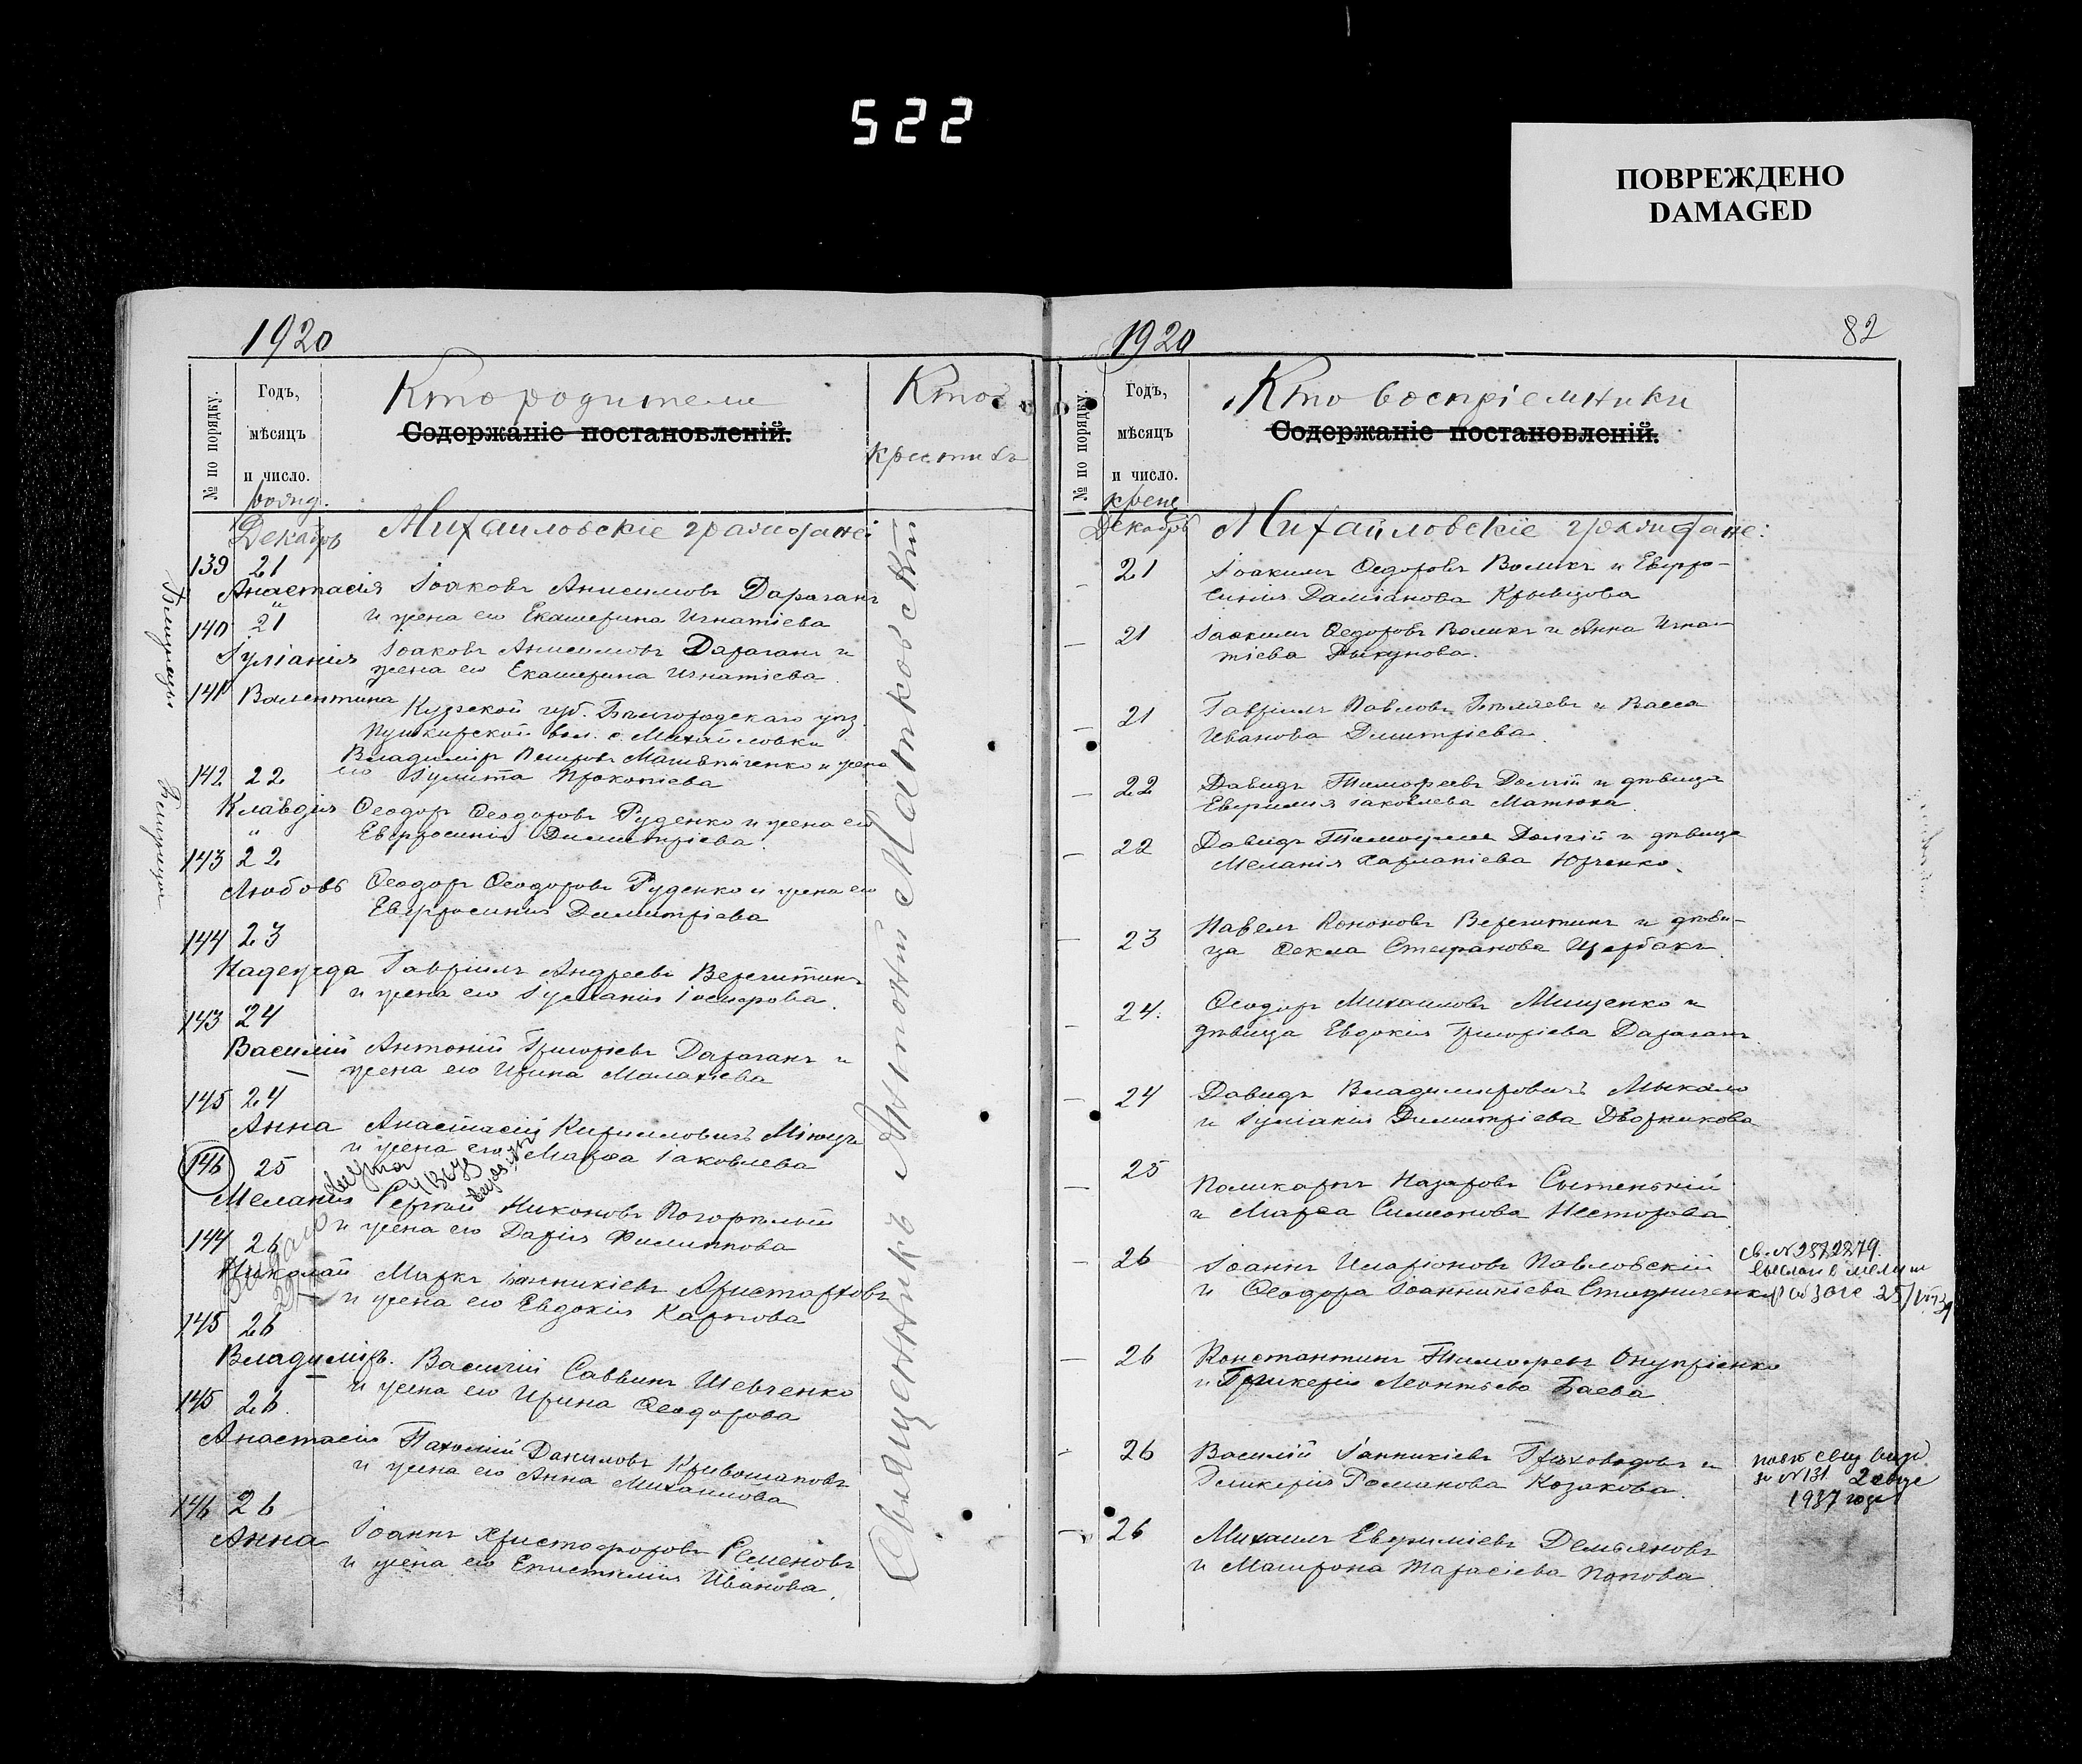 522
ПОВРЕЖДЕНО
DAMAGED
1920
№ по порядку.
Годъ,
мѣсяцъ
и число.
Кто родители
Содержаніе постановленій.
Кто
крестилъ
Декабрь
Михаиловскіе граждане:
Близнецы
Близнецы
139 21
Анастасія Іоаковъ Анисимовъ Дараганъ
и жена его Екатерина Игнатіева
140 21
Іуліанія Іоаковъ Анисимовъ Дараганъ и
жена его Екатерина Игнатіева
141 Валентина
Курской губ. Бѣлгородскаго уѣз.
Пушкарской вол. с. Михайловки
Владиміръ Петровъ и жена
его Іулита Прокопіева
142 22
Клавдія Ѳеодоръ Ѳеодоровъ Руденко и жена его
Евфросинія Димитріева
143 22
Любовь Ѳеодоръ Ѳеодоровъ Руденко и жена его
Евфросинія Димитріева
144 23
Надежда Гавріилъ Андреевъ Верегитинъ
и жена его Іуліанія Іосифова
143 24
Василій Антоній Григоріевъ Дараганъ и
жена его Ирина Малахіева
145 24
Анна Анастасій Кирилловичъ
и жена его Марѳа Іаковлева
146 25
Меланія Сергій Никоновъ Погорѣлый
и жена его Дарія Филиппова
144 26
Николай Маркъ Іанникіевъ Аристарховъ
и жена его Евдокія Карпова
145 26
Владиміръ. Василій Саввинъ Шевченко
и жена его Ирина Ѳеодорова
145 26
Анастасія Пахомій Даниловъ Кривошаповъ
и жена его Анна Михаилова
146 26
Анна Іоаннъ Христофоровъ Семеновъ
и жена его Епистимія Иванова.
Священникъ Антоній Матковскій
1920
82
№ по порядку.
Годъ,
мѣсяцъ
и число.
крещ
Кто воспріемники
Содержаніе постановленій.
Декабрь
Михайловскіе граждане:
21 Іоакимъ Ѳедоровъ Воликъ и Евфро-
синія Даміанова Кривцова
21 Іоакимъ Ѳедоровъ Воликъ и Анна Игна-
тіева Дикунова.
21 Гавріилъ Павловъ Бѣляевъ и Васса
Иванова Димитріева.
22 Давидъ Тимоѳеевъ Долгій и дѣвица
Евфимія Іаковлева Матюха
22 Давидъ Долгій и дѣвица
Меланія Харлапіева Юрченко.
23 Павелъ Кононовъ Верегитинъ и дѣви-
ца Ѳекла Стефанова Щербакъ.
24. Ѳеодоръ Михаиловъ Мищенко и
дѣвица Евдокія Григоріева Дараганъ.
24 Давидъ Владимировичъ Мыкало
и Іуліанія Димитріева Дворникова
25 Поликарпъ Назаровъ Сытенькій
и Марѳа Симеонова Несторова
26 Іоаннъ Иларіоновъ Павловскій
и Ѳеодора Іоанникіева Стадниченко
26 Константинъ Тимоѳеевъ Онупріенко
и Гликерія Леонтіева Баева
26 Василій Іанникіевъ Грѣховодовъ и
Гликерія Романова Козакова.
26 Михаилъ Евфиміевъ Демьяновъ
и Матрона Тарасіева Попова
Св. № 2872879.
повт свид выд
за № 131 2
1937 года